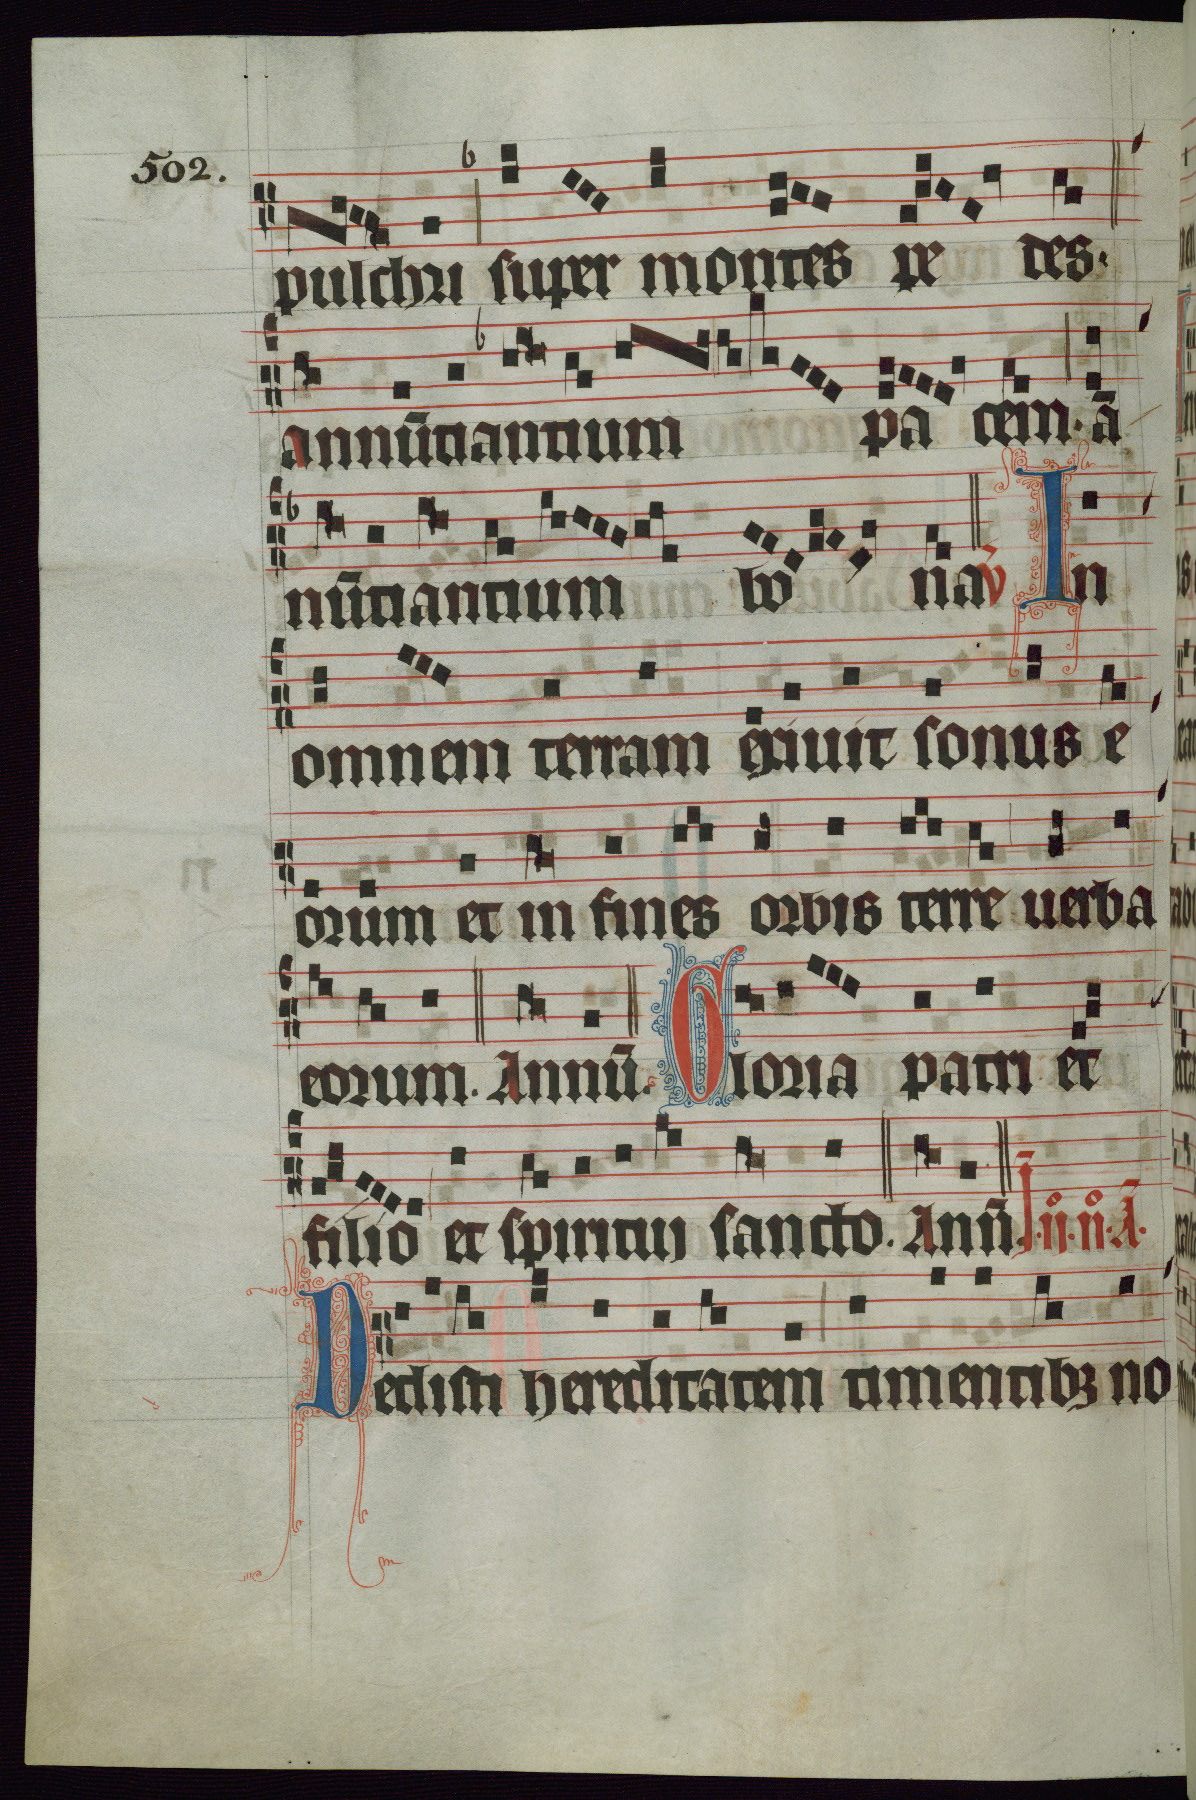 502.
pulchri super montes pe des.
annūtiantium pa cem. ā
nūtiantium bo na v̄ In
omnem terram exiuit sonus e
orum et in fines orbis terre uerba
eorum. Annū. Gloria patri et
filio et spiritui sancto. Annū. I. n̊. n̊. Ā.
Dedisti hereditatem timentibꝫ no